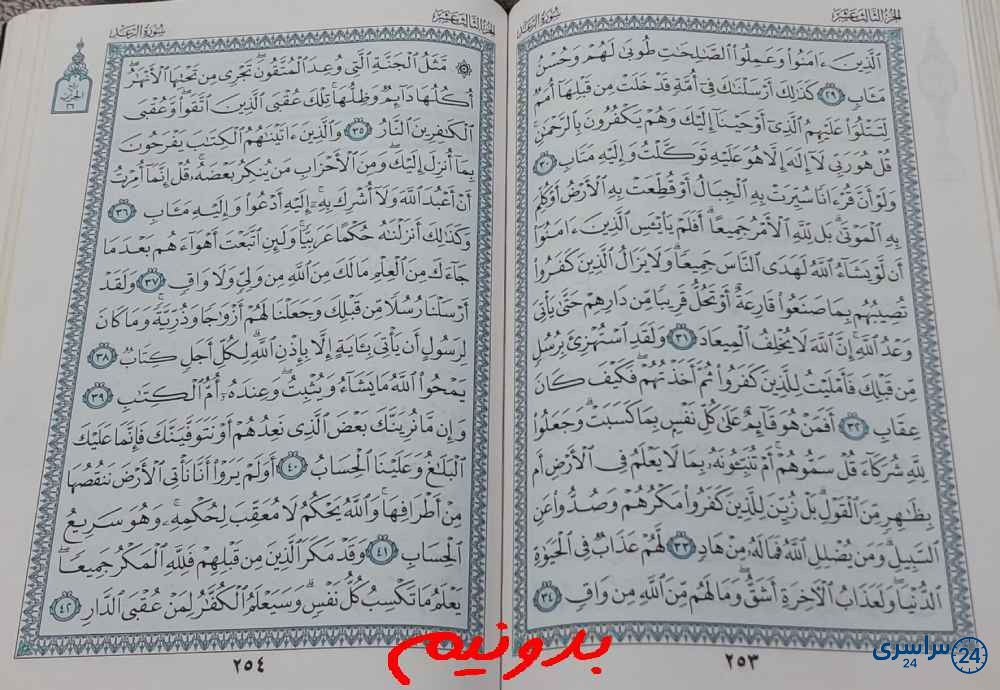 الجزء الثالث عشر
سورة الرعد
ٱلَّذِينَ ءَامَنُوا۟ وَعَمِلُوا۟ ٱلصَّٰلِحَٰتِ طُوبَىٰ لَهُمْ وَحُسْنُ
مَـَٔابٍ ٢٩ كَذَٰلِكَ أَرْسَلْنَٰكَ فِىٓ أُمَّةٍ قَدْ خَلَتْ مِن قَبْلِهَآ أُمَمٌ
لِّتَتْلُوَا۟ عَلَيْهِمُ ٱلَّذِىٓ أَوْحَيْنَآ إِلَيْكَ وَهُمْ يَكْفُرُونَ بِٱلرَّحْمَٰنِ
قُلْ هُوَ رَبِّى لَآ إِلَٰهَ إِلَّا هُوَ عَلَيْهِ تَوَكَّلْتُ وَإِلَيْهِ مَتَابِ ٣٠
وَلَوْ أَنَّ قُرْءَانًا سُيِّرَتْ بِهِ ٱلْجِبَالُ أَوْ قُطِّعَتْ بِهِ ٱلْأَرْضُ أَوْ كُلِّمَ
بِهِ ٱلْمَوْتَىٰ بَل لِّلَّهِ ٱلْأَمْرُ جَمِيعًا أَفَلَمْ يَا۟يْـَٔسِ ٱلَّذِينَ ءَامَنُوٓا۟
أَن لَّوْ يَشَآءُ ٱللَّهُ لَهَدَى ٱلنَّاسَ جَمِيعًا وَلَا يَزَالُ ٱلَّذِينَ كَفَرُوا۟
تُصِيبُهُم بِمَا صَنَعُوا۟ قَارِعَةٌ أَوْ تَحُلُّ قَرِيبًا مِّن دَارِهِمْ حَتَّىٰ يَأْتِىَ
وَعْدُ ٱللَّهِ إِنَّ ٱللَّهَ لَا يُخْلِفُ ٱلْمِيعَادَ ٣١ وَلَقَدِ ٱسْتُهْزِئَ بِرُسُلٍ
مِّن قَبْلِكَ فَأَمْلَيْتُ لِلَّذِينَ كَفَرُوا۟ ثُمَّ أَخَذْتُهُمْ فَكَيْفَ كَانَ
عِقَابِ ٣٢ أَفَمَنْ هُوَ قَآئِمٌ عَلَىٰ كُلِّ نَفْسٍۭ بِمَا كَسَبَتْ وَجَعَلُوا۟
لِلَّهِ شُرَكَآءَ قُلْ سَمُّوهُمْ أَمْ تُنَبِّـُٔونَهُۥ بِمَا لَا يَعْلَمُ فِى ٱلْأَرْضِ أَم
بِظَٰهِرٍ مِّنَ ٱلْقَوْلِ بَلْ زُيِّنَ لِلَّذِينَ كَفَرُوا۟ مَكْرُهُمْ وَصُدُّوا۟ عَنِ
ٱلسَّبِيلِ وَمَن يُضْلِلِ ٱللَّهُ فَمَا لَهُۥ مِنْ هَادٍ ٣٣ لَّهُمْ عَذَابٌ فِى ٱلْحَيَوٰةِ
ٱلدُّنْيَا وَلَعَذَابُ ٱلْءَاخِرَةِ أَشَقُّ وَمَا لَهُم مِّنَ ٱللَّهِ مِن وَاقٍ ٣٤
٢٥٣
الجزء الثالث عشر
سورة الرعد
۞ مَّثَلُ ٱلْجَنَّةِ ٱلَّتِى وُعِدَ ٱلْمُتَّقُونَ تَجْرِى مِن تَحْتِهَا ٱلْأَنْهَٰرُ
أُكُلُهَا دَآئِمٌ وَظِلُّهَا تِلْكَ عُقْبَى ٱلَّذِينَ ٱتَّقَوا۟ وَّعُقْبَى
ٱلْكَٰفِرِينَ ٱلنَّارُ ٣٥ وَٱلَّذِينَ ءَاتَيْنَٰهُمُ ٱلْكِتَٰبَ يَفْرَحُونَ
بِمَآ أُنزِلَ إِلَيْكَ وَمِنَ ٱلْأَحْزَابِ مَن يُنكِرُ بَعْضَهُۥ قُلْ إِنَّمَآ أُمِرْتُ
أَنْ أَعْبُدَ ٱللَّهَ وَلَآ أُشْرِكَ بِهِۦٓ إِلَيْهِ أَدْعُوا۟ وَإِلَيْهِ مَـَٔابِ ٣٦
وَكَذَٰلِكَ أَنزَلْنَٰهُ حُكْمًا عَرَبِيًّا وَلَئِنِ ٱتَّبَعْتَ أَهْوَآءَهُم بَعْدَ مَا
جَآءَكَ مِنَ ٱلْعِلْمِ مَا لَكَ مِنَ ٱللَّهِ مِن وَلِىٍّ وَلَا وَاقٍ ٣٧ وَلَقَدْ
أَرْسَلْنَا رُسُلًا مِّن قَبْلِكَ وَجَعَلْنَا لَهُمْ أَزْوَٰجًا وَذُرِّيَّةً وَمَا كَانَ
لِرَسُولٍ أَن يَأْتِىَ بِـَٔايَةٍ إِلَّا بِإِذْنِ ٱللَّهِ لِكُلِّ أَجَلٍ كِتَابٌ ٣٨
يَمْحُوا۟ ٱللَّهُ مَا يَشَآءُ وَيُثْبِتُ وَعِندَهُۥٓ أُمُّ ٱلْكِتَٰبِ ٣٩
وَإِن مَّا نُرِيَنَّكَ بَعْضَ ٱلَّذِى نَعِدُهُمْ أَوْ نَتَوَفَّيَنَّكَ فَإِنَّمَا عَلَيْكَ
ٱلْبَلَٰغُ وَعَلَيْنَا ٱلْحِسَابُ ٤٠ أَوَلَمْ يَرَوْا۟ أَنَّا نَأْتِى ٱلْأَرْضَ نَنقُصُهَا
مِنْ أَطْرَافِهَا وَٱللَّهُ يَحْكُمُ لَا مُعَقِّبَ لِحُكْمِهِۦ وَهُوَ سَرِيعُ
ٱلْحِسَابِ ٤١ وَقَدْ مَكَرَ ٱلَّذِينَ مِن قَبْلِهِمْ فَلِلَّهِ ٱلْمَكْرُ جَمِيعًا
يَعْلَمُ مَا تَكْسِبُ كُلُّ نَفْسٍ وَسَيَعْلَمُ ٱلْكُفَّٰرُ لِمَنْ عُقْبَى ٱلدَّارِ ٤٢
٢٥٤
بدونیم
سراسری
24
24